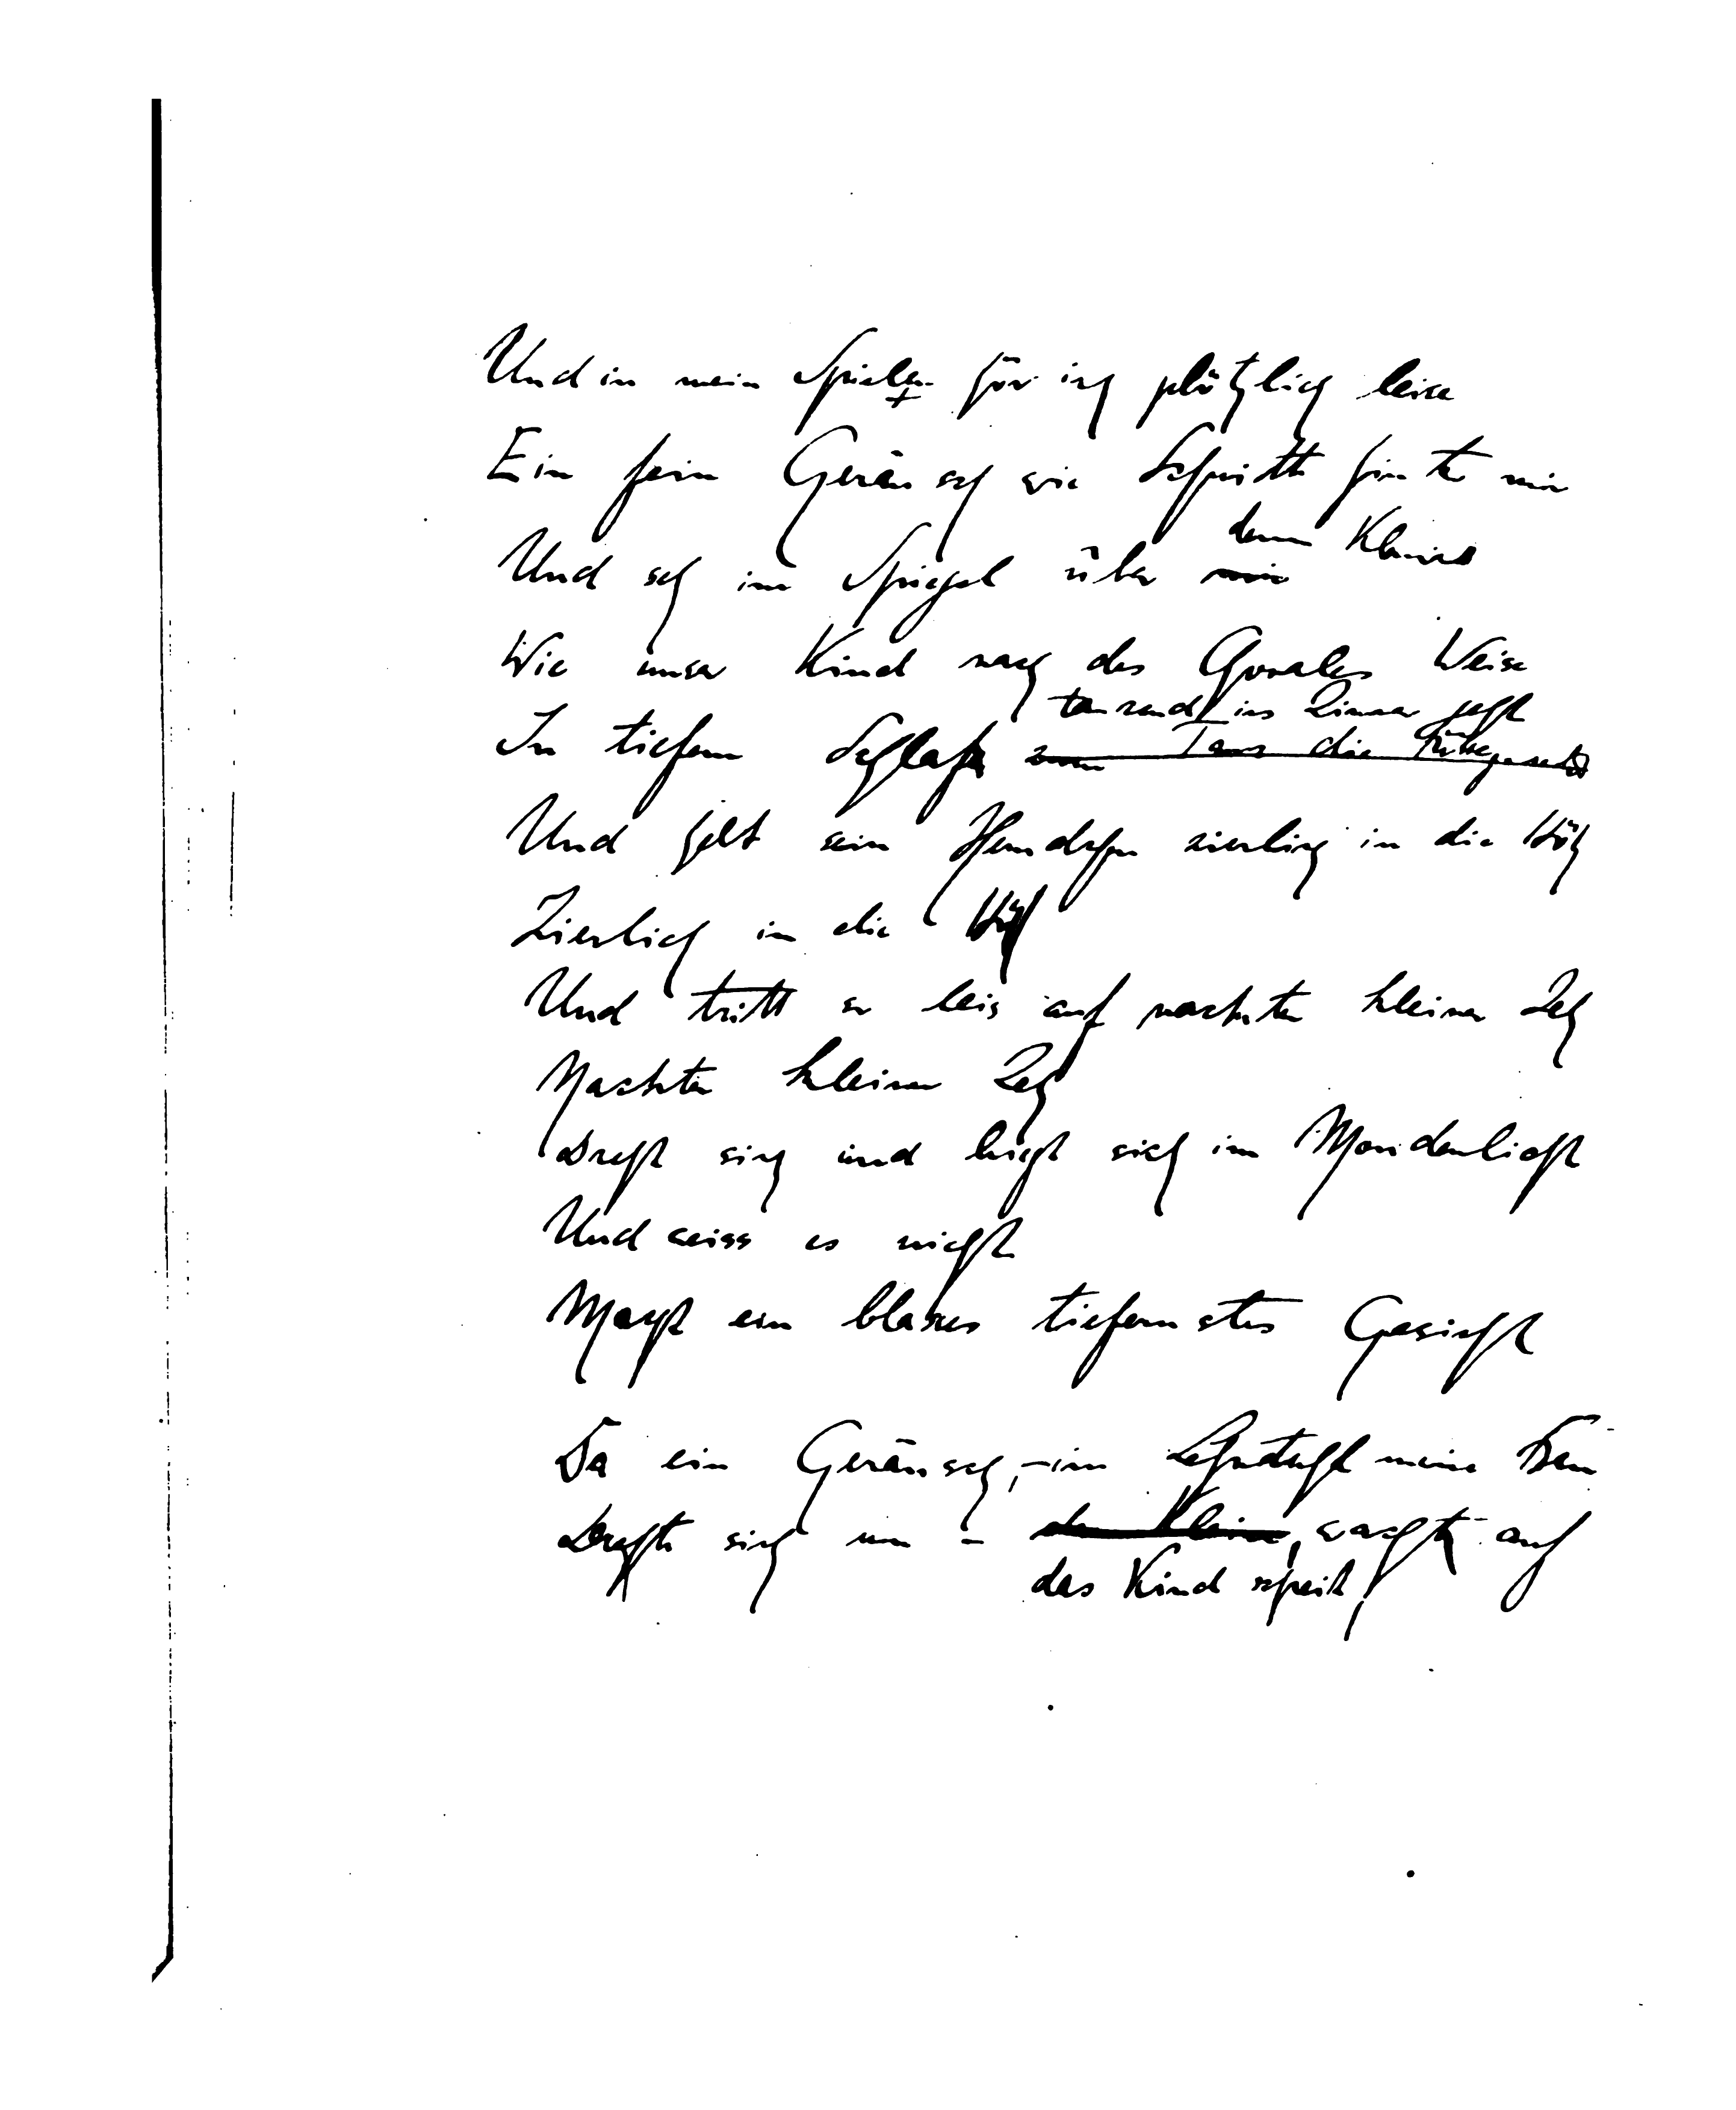 Und in mein Spielen hör ich plötzlich leise
Ein fein Geräusch wie Schritte hinter mir
Und seh im Spiegel über mir dem Klavier
Wie unser Kind nach des Chorales Weise
tanzend ins Zimmer geht
In tiefem Schlafe zum Tanz die Füsse
Und hebt sein Hemdchen zierlich in die Höh
Zierlich in die Höh
Und tritt so leis auf nackter kleiner Zeh
Nackter kleiner Zeh
Dreht sich und biegt sich im Mondenlicht
Und weiss es nicht
Macht ein blasses tiefernstes Gesicht
Da ein Geräusch, – im Lehnstuhl meine Frau
Drehte sich um – der Kleine, wachte auf
das Kind schreit,